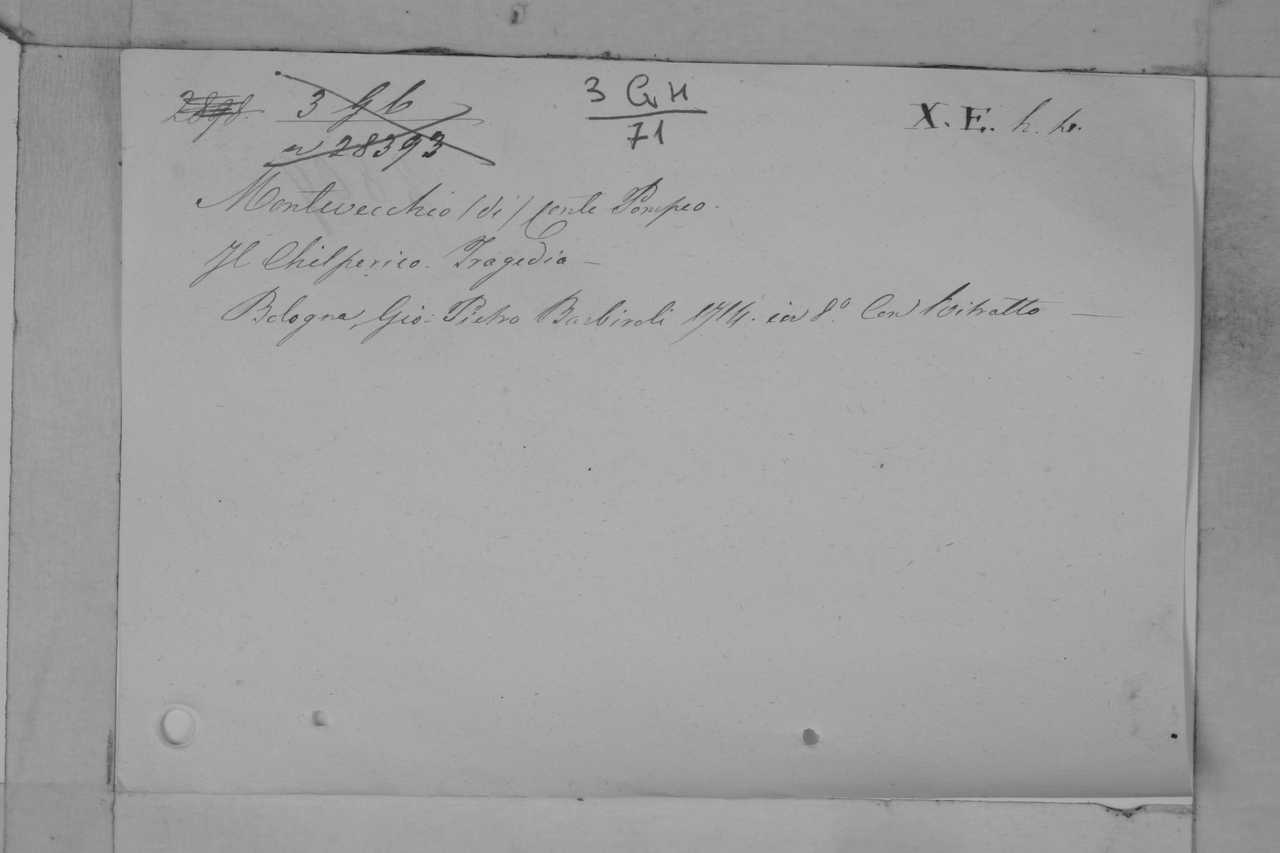 2898. 3 Gb 3 GH X. E. h. h.
n 28393 71
Montevecchio (di) Conte Pompeo.
Il Chilperico. Tragedia —
Bologna, Gio: Pietro Barbiroli 1714. in 8.º Con Ritratto —